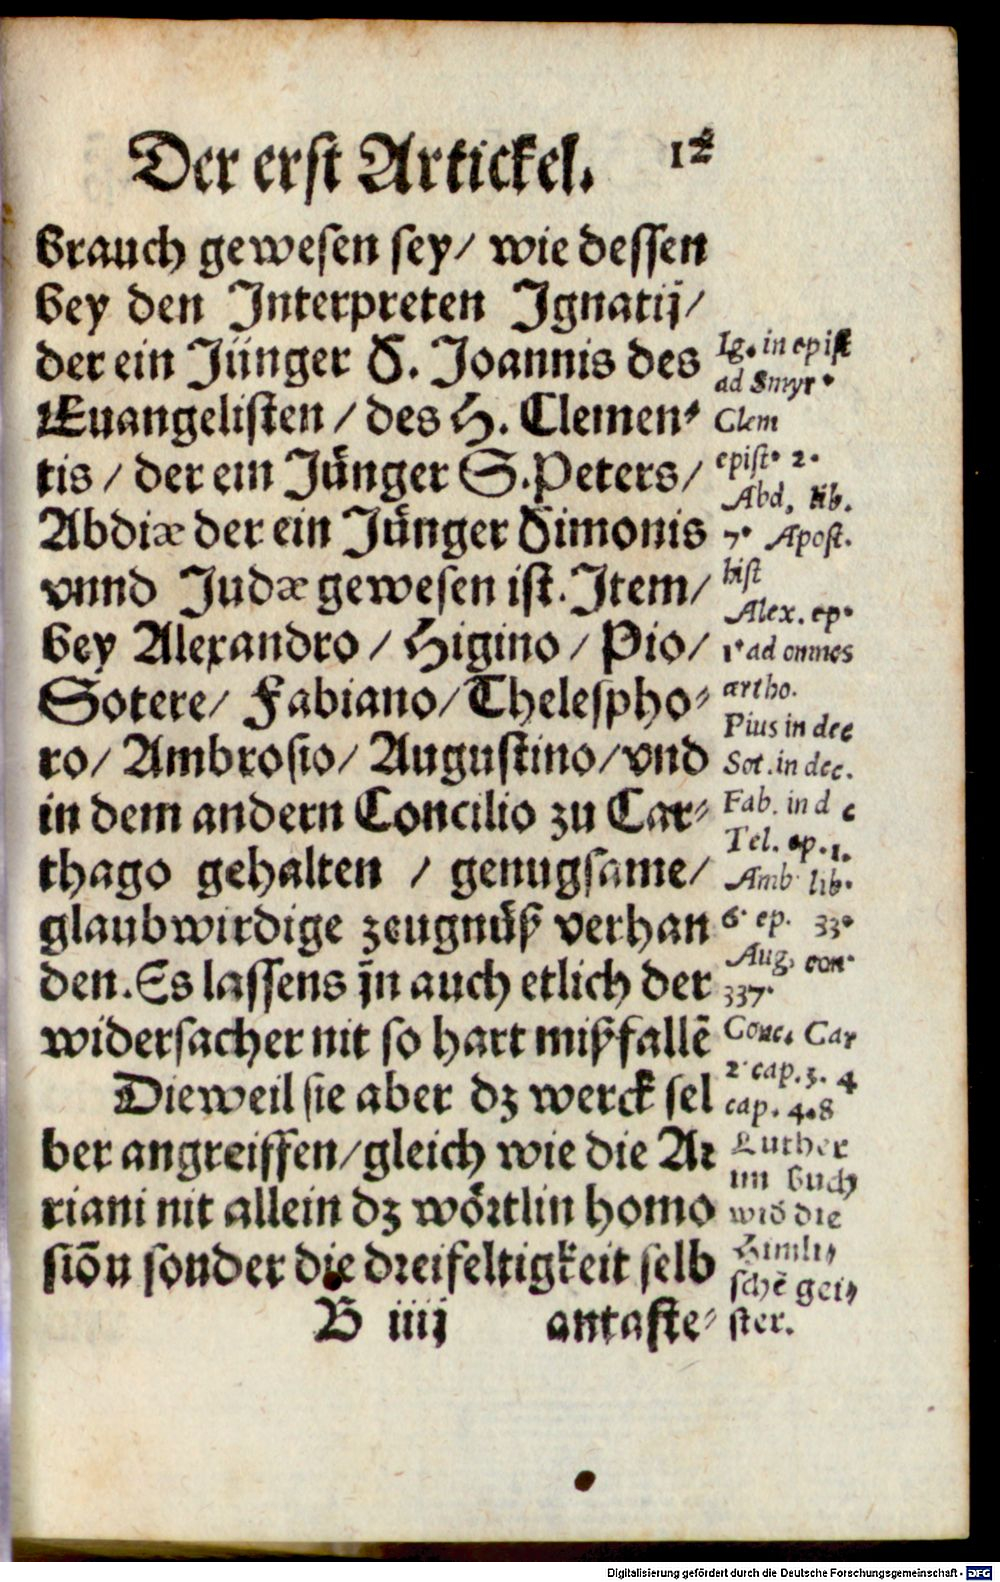 Der erst Artickel. 12
brauch gewesen sey/ wie dessen
bey den Interpreten Ignatij/
der ein Jünger S. Joannis des
Euangelisten / des H. Clemen-
tis / der ein Jünger S. Peters/
Abdiæ der ein Jünger Simonis
vnnd Judæ gewesen ist. Item/
bey Alexandro / Higino / Pio/
Sotere/ Fabiano/ Thelespho-
ro/ Ambrosio/ Augustino/ vnd
in dem andern Concilio zu Car-
thago gehalten / genugsame/
glaubwirdige zeugnüß verhan
den. Es lassens jn auch etlich der
widersacher nit so hart mißfallē
Dieweil sie aber dz werck sel
ber angreiffen/ gleich wie die Ar
riani nit allein dz wörtlin homo
siōn sonder die dreifeltigkeit selb
B iiij antaste-
Ig. in epist
ad Smyr.
Clem
epist. 2.
Abd. lib.
7. Apost.
hist
Alex. ep.
1. ad omnes
ortho.
Pius in dec
Sot. in dec.
Fab. in d c
Tel. ep. 1.
Amb lib.
6. ep. 33.
Aug. con.
337.
Conc. Car
2. cap. 3. 4
cap. 4. 8
Luther
im buch
wid die
Himli-
schē gei-
ster.
Digitalisierung gefördert durch die Deutsche Forschungsgemeinschaft - DFG